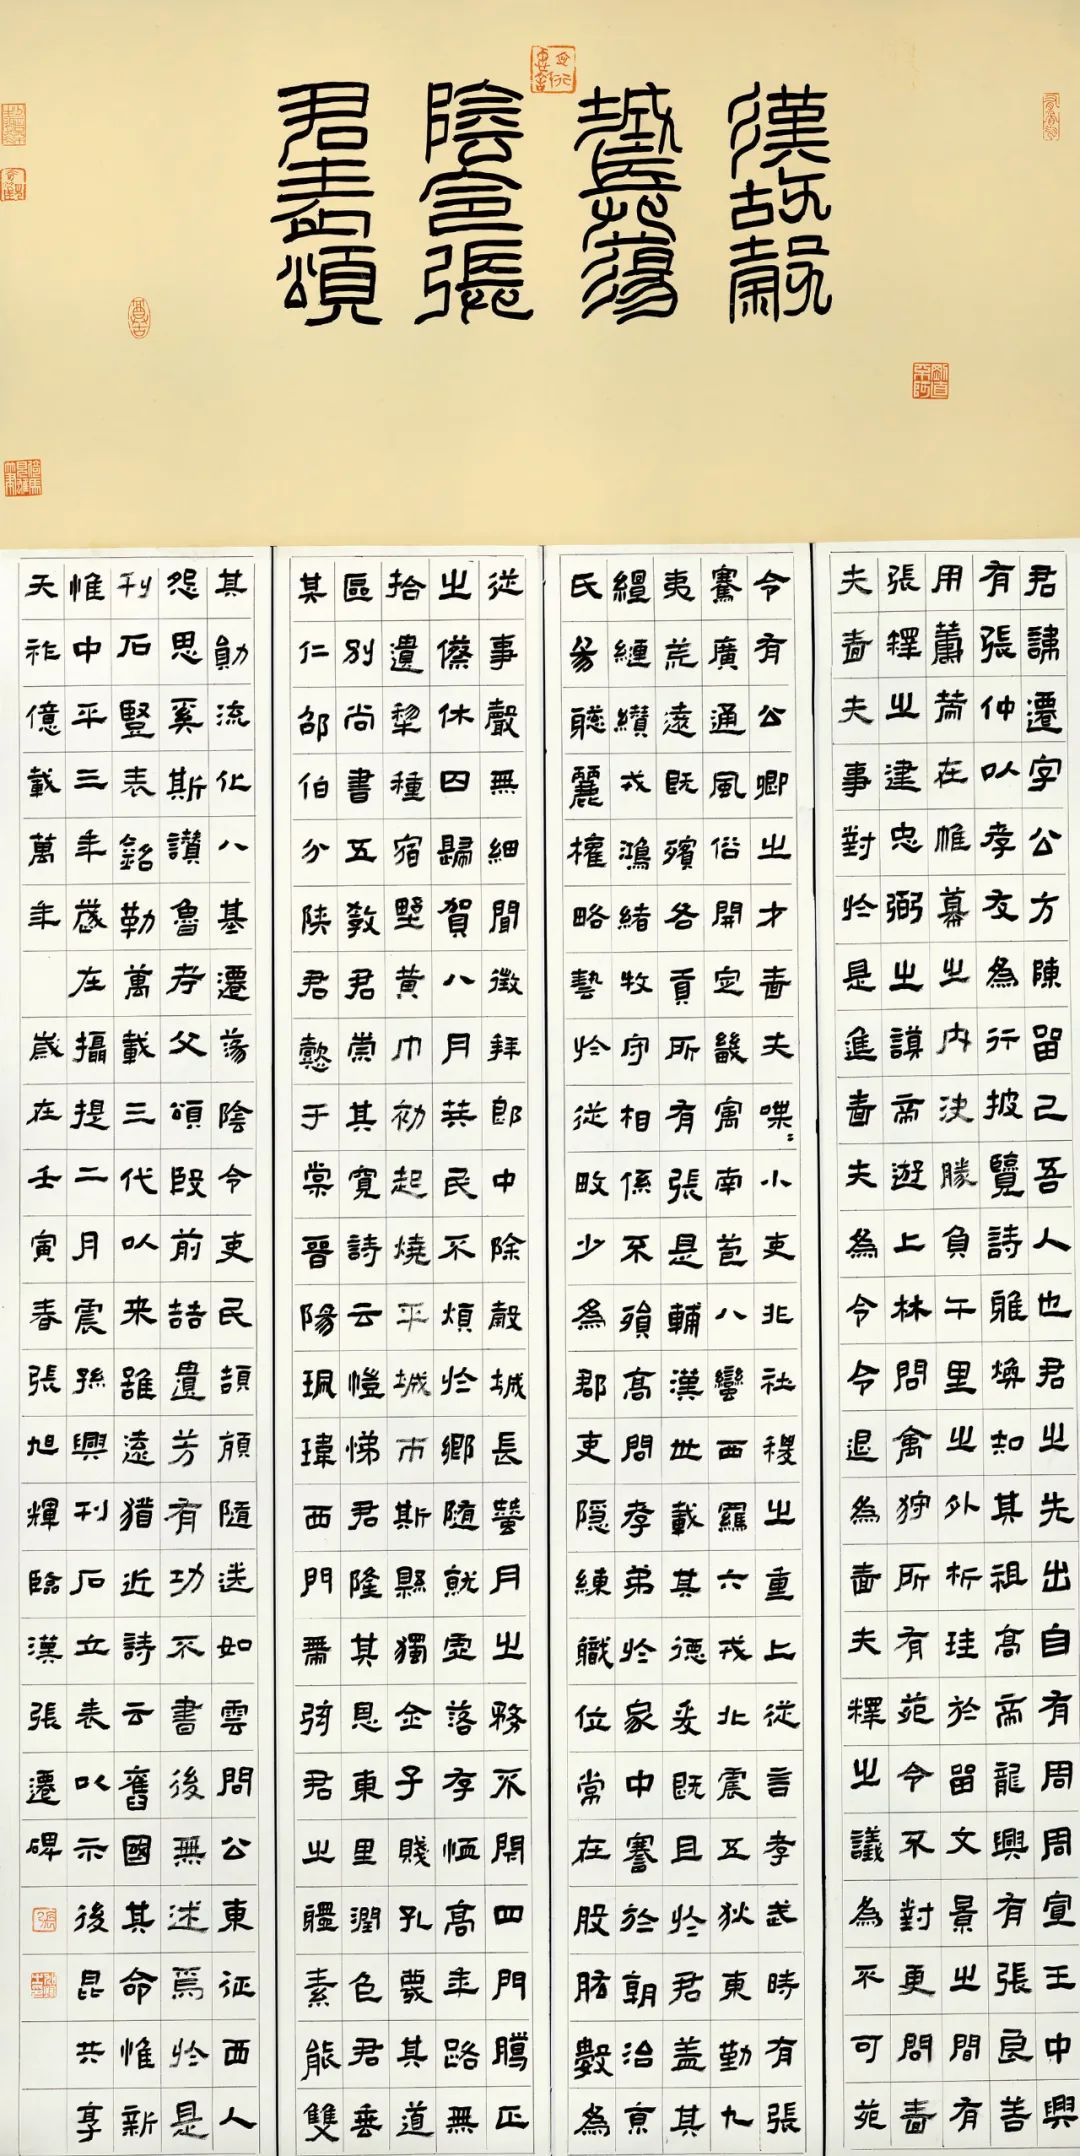 漢故穀
城長蕩
陰令張
君表頌
君諱遷字公方陳留己吾人也君之先出自有周周宣王中興
有張仲以孝友為行披覽詩雅煥知其祖高帝龍興有張良善
用籌策在帷幕之內決勝負千里之外析珪於留文景之間有
張釋之建忠弼之謨帝遊上林問禽狩所有苑令不對更問嗇
夫嗇夫事對於是進嗇夫為令令退為嗇夫釋之議為不可苑
令有公卿之才嗇夫喋喋小吏非社稷之重上從言孝武時有張
騫廣通風俗開定畿寓南苞八蠻西羈六戎北震五狄東勤九
夷荒遠既殯各貢所有張是輔漢世載其德爰既且於君蓋其
纏綿纘戎鴻緒牧守相係不殞高問孝弟於家中謇於朝治京
氏易聰麗權略藝於從畋少為郡吏隱練職位常在股肱數為
從事聲無細聞徵拜郎中除穀城長蠶月之務不閉四門騰正
之僚休囚歸賀八月筭民不煩於鄉隨就虛落存恤高年路無
拾遺犁種宿野黃巾初起燒平城市斯縣獨全子賤孔蔑其道
區別尚書五教君崇其寬詩云愷悌君隆其恩東里潤色君垂
其仁邵伯分陝君懿于棠晉陽珮瑋西門帶弦君之體素能雙
其勛流化八基遷蕩陰令吏民頡頏隨送如雲周公東征西人
怨思奚斯讚魯考父頌殷前喆遺芳有功不書後無述焉於是
刊石豎表銘勒萬載三代以來雖遠猶近詩云舊國其命惟新
惟中平三年歲在攝提二月震孫興刊石立表以示後昆共享
天祚億載萬年 歲在壬寅春張旭輝臨漢張遷碑